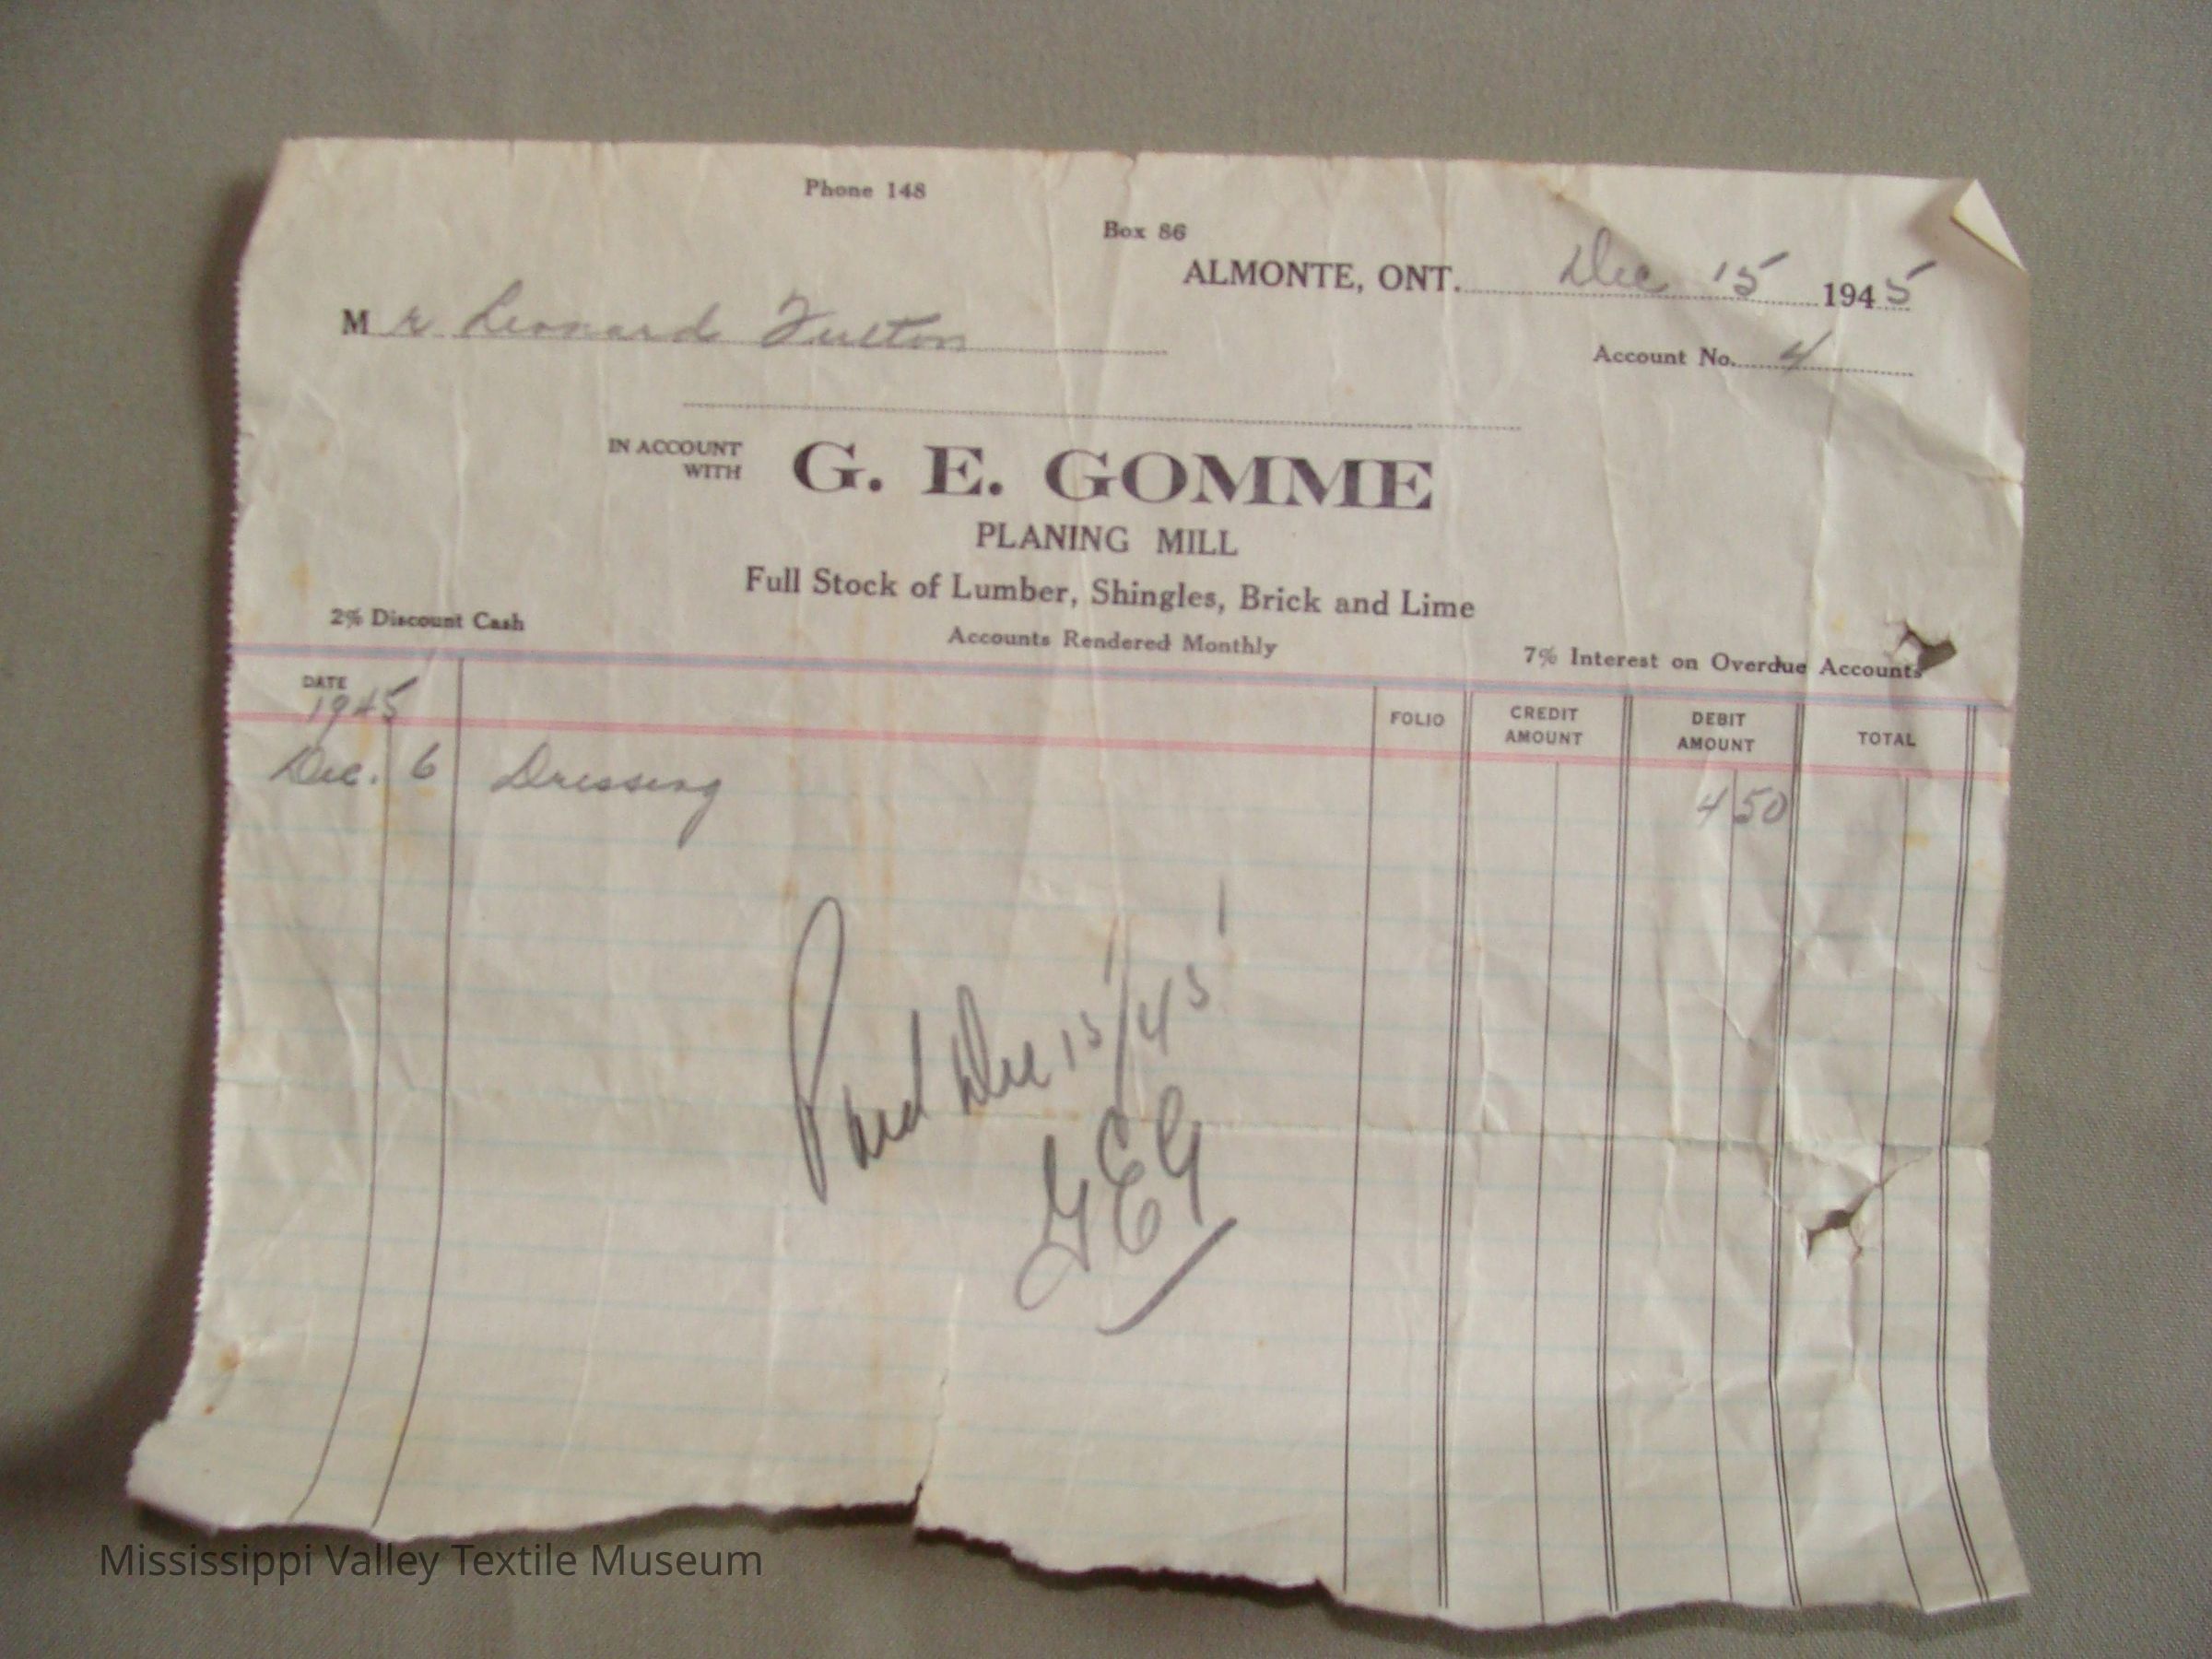 Phone 148
Box 86
ALMONTE, ONT. Dec 15 1945
Mr Leonard Fulton
Account No. 4
IN ACCOUNT
WITH
G. E. GOMME
PLANING MILL
Full Stock of Lumber, Shingles, Brick and Lime
2% Discount Cash
Accounts Rendered Monthly
7% Interest on Overdue Accounts
DATE
FOLIO
CREDIT
AMOUNT
DEBIT
AMOUNT
TOTAL
1945
Dec. 6 Dressing 4 50
Paid Dec 15/45
GEG
Mississippi Valley Textile Museum